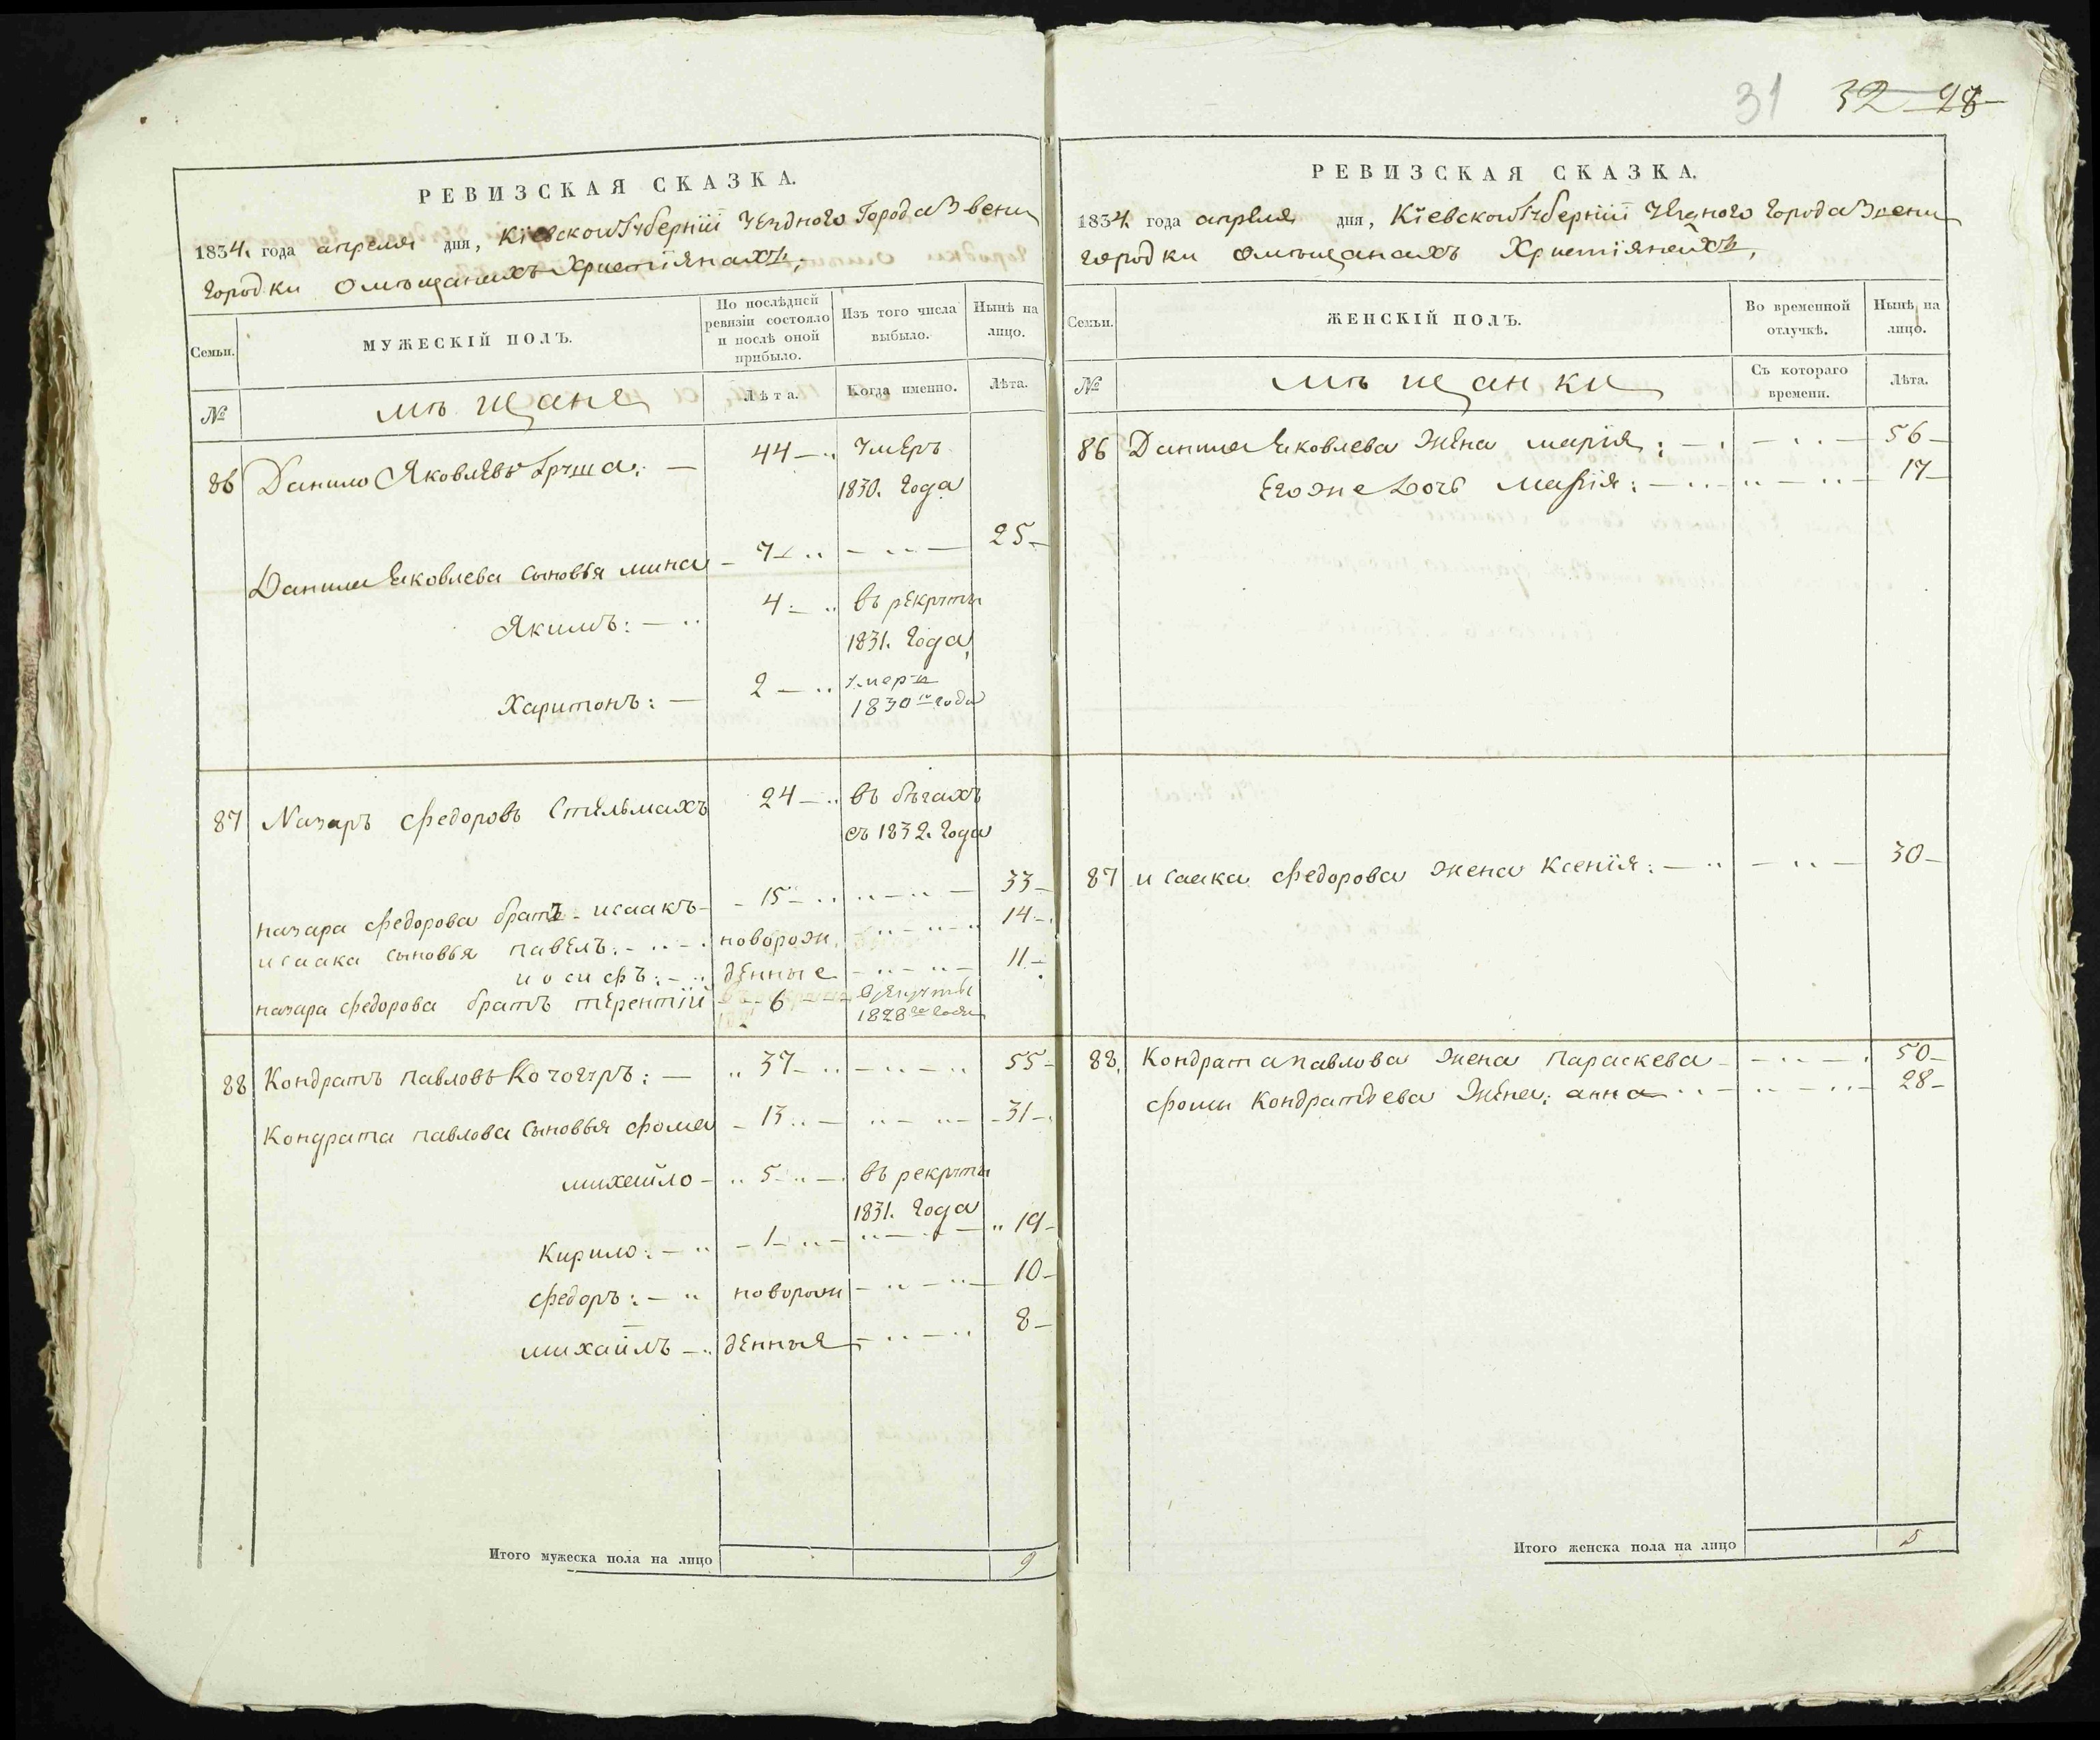 31 32 28
РЕВИЗСКАЯ СКАЗКА.
1834. года апреля дня, Кіевской Губерніи Уездного Города Звени
городки О мѣщанахъ Христіянахъ;
Семьи.
МУЖЕСКІЙ ПОЛЪ.
По послѣдней ревизіи состояло и послѣ оной прибыло.
Изъ того числа выбыло.
Нынѣ на лицо.
№
мѣщане
Лѣта.
Когда именно.
Лѣта.
86 Данило Яковлевъ Груша: — 44 — умеръ
1830. года
Данила Яковлева сыновья мина — 7 — 25 —
Якимъ: — 4 — въ рекруты
1831. года
Харитонъ: — 2 — умеръ
1830 го года
87 Назаръ Федоровъ Стельмахъ 24 — въ бѣгахъ
съ 1832. года
назара Федорова братъ — исаакъ — 15 — 33 —
исаака сыновья павелъ: — новорож 14 —
иосифъ: — денные — 11 —
назара Федорова братъ терентій 6 — в рекруты
1828 го года
88 Кондратъ павловъ Кочогуръ: — 37 — 55 —
Кондрата павлова сыновья Фома — 13 — 31 —
михайло — 5 — въ рекруты
1831. года
Кирило: — 1 — 19 —
Федоръ: — новорож — 10 —
михаилъ — денныя — 8 —
Итого мужеска пола на лицо 9
РЕВИЗСКАЯ СКАЗКА.
1834. года апреля дня, Кіевской Губерніи Уезного города Звени
городки О мѣщанахъ Христіянахъ,
Семьи.
ЖЕНСКІЙ ПОЛЪ.
Во временной отлучкѣ.
Нынѣ на лицо.
№
мѣщанки
Съ котораго времени.
Лѣта.
86 Данила Яковлева жена марія: — 56 —
Его же дочь марія: — 17 —
87 исаака Федорова жена Ксенія: — 30 —
88. Кондрата павлова жена параскева — 50 —
Фомы Кондратьева жена: анна — 28 —
Итого женска пола на лицо 5